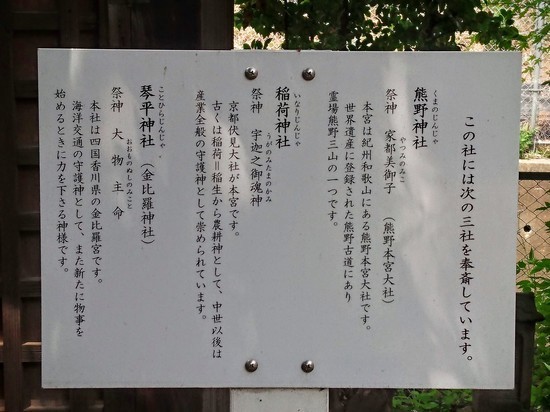 この社には次の三社を奉斎しています。
くまのじんじゃ
熊野神社
やつみのみこ
祭神 家都美御子 (熊野本宮大社)
本宮は紀州和歌山にある熊野本宮大社です。
世界遺産に登録された熊野古道にあり
霊場熊野三山の一つです。
いなりじんじゃ
稲荷神社
うがのみたまのかみ
祭神 宇迦之御魂神
京都伏見大社が本宮です。
古くは稲荷=稲生から農耕神として、中世以後は
産業全般の守護神として崇められています。
ことひらじんじゃ
琴平神社 (金比羅神社)
おおものぬしのみこと
祭神 大物主命
本社は四国香川県の金比羅宮です。
海洋交通の守護神として、また新たに物事を
始めるときに力を下さる神様です。